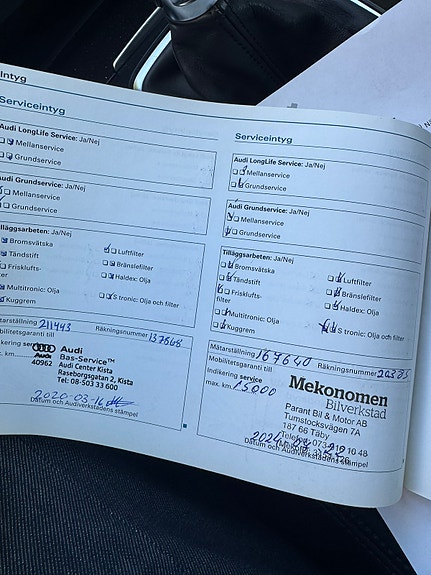 Serviceintyg
Audi LongLife Service: Ja/Nej
Mellanservice
Grundservice
Audi Grundservice: Ja/Nej
Mellanservice
Grundservice
Tilläggsarbeten: Ja/Nej
Bromsvätska
Luftfilter
Tändstift
Bränslefilter
Frisklufts-
Haldex: Olja
Multitronic: Olja
S tronic: Olja och filter
Kuggrem
Mätarställning 211443
Räkningsnummer 137868
Mobilitetsgaranti till
Indikering service
max. km.
Audi
Bas-Service™
40962
Audi Center Kista
Raseborgsgatan 2, Kista
Tel: 08-503 33 600
2020-03-16
Datum och Audiverkstadens stämpel
Serviceintyg
Audi LongLife Service: Ja/Nej
Mellanservice
Grundservice
Audi Grundservice: Ja/Nej
Mellanservice
Grundservice
Tilläggsarbeten: Ja/Nej
Bromsvätska
Luftfilter
Tändstift
Bränslefilter
Frisklufts-
filter
Haldex: Olja
Multitronic: Olja
S tronic: Olja och filter
Kuggrem
Mätarställning
Räkningsnummer
Mobilitetsgaranti till
Indikering service
max. km. 15000
Mekonomen
Bilverkstad
Parant Bil & Motor AB
Tumstocksvägen 7A
187 66 Täby
Datum och Audiverkstadens stämpel